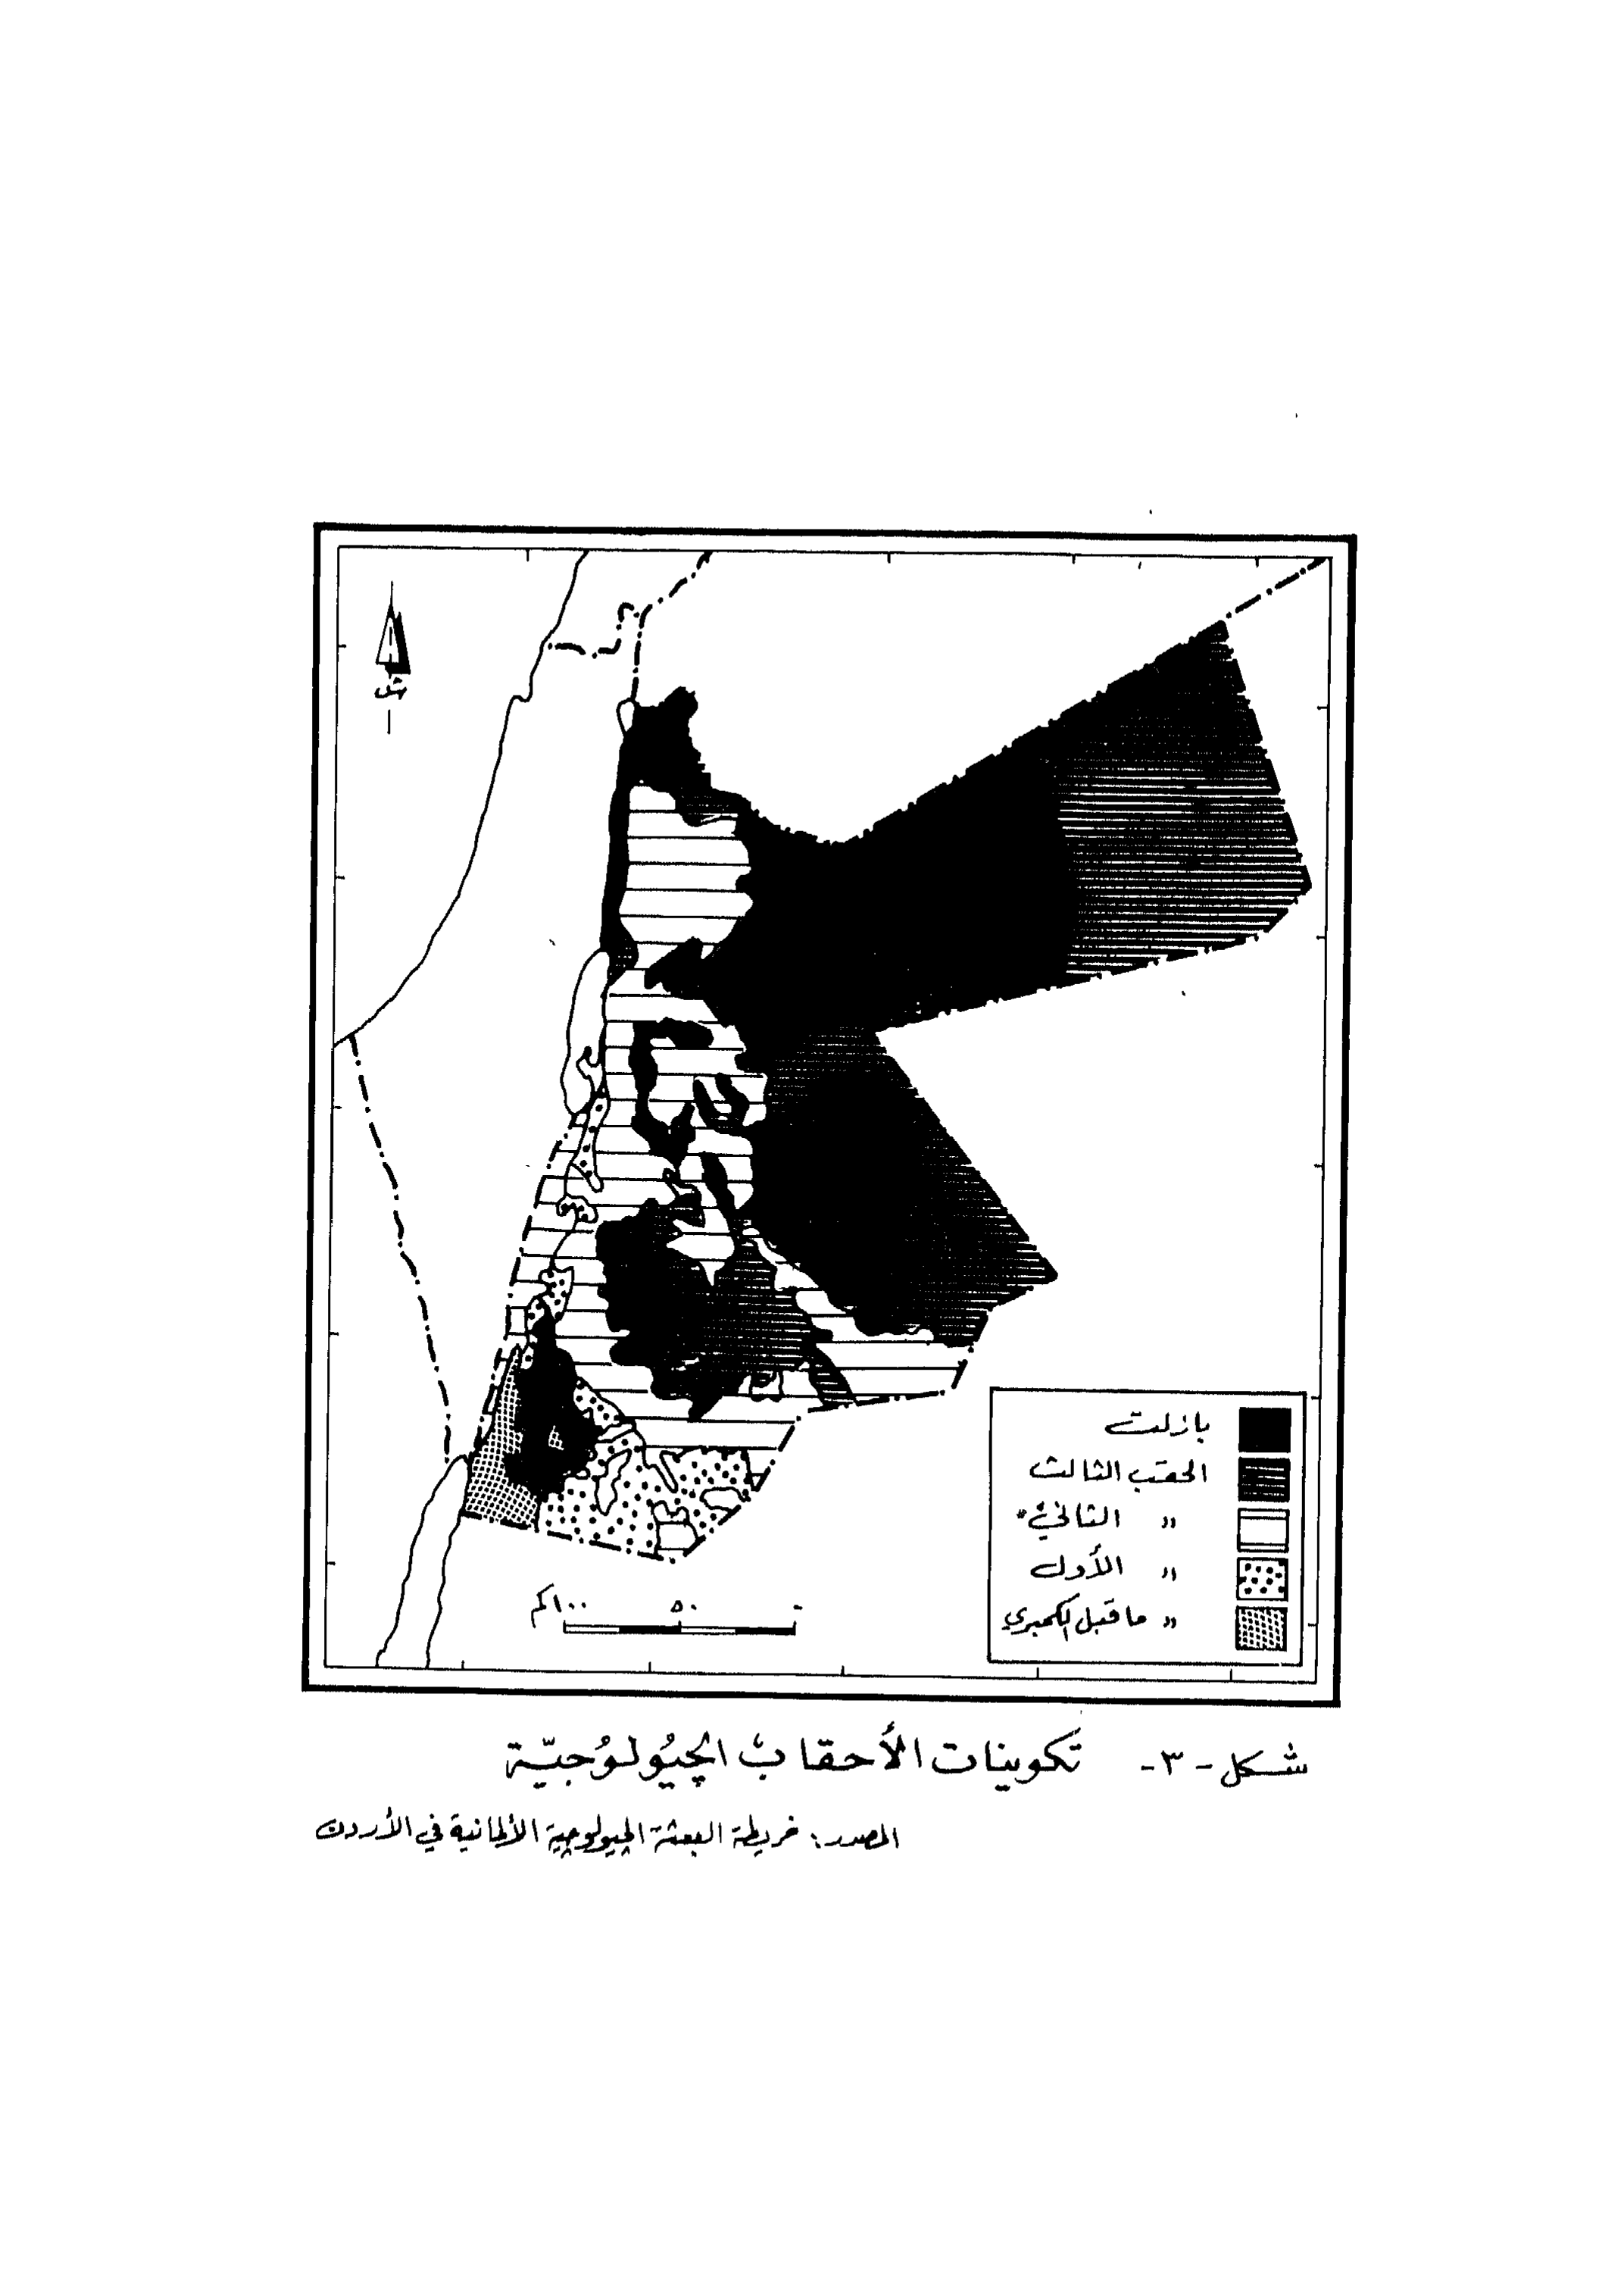 شمال
بازلت
الحقب الثالث
" الثاني
" الأول
" ما قبل الكمبري
١٠٠كم ٥٠ ٠
شكل -٣- تكوينات الأحقاب الجيُولوُجيّة
المصدر: خريطة البعثة الجيولوجية الألمانية في الأردن